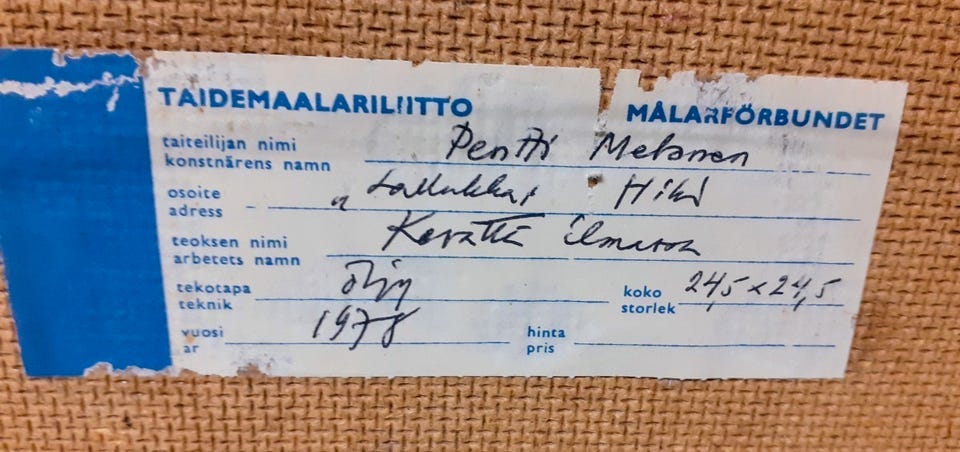 TAIDEMAALARILIITTO MÅLARFÖRBUNDET
taiteilijan nimi
konstnärens namn Pentti Melanen
osoite
adress Lallukka, Hlki
teoksen nimi
arbetets namn Kevättä ilmassa
tekotapa
teknik öljy
koko
storlek 24,5 x 24,5
vuosi
år 1978
hinta
pris